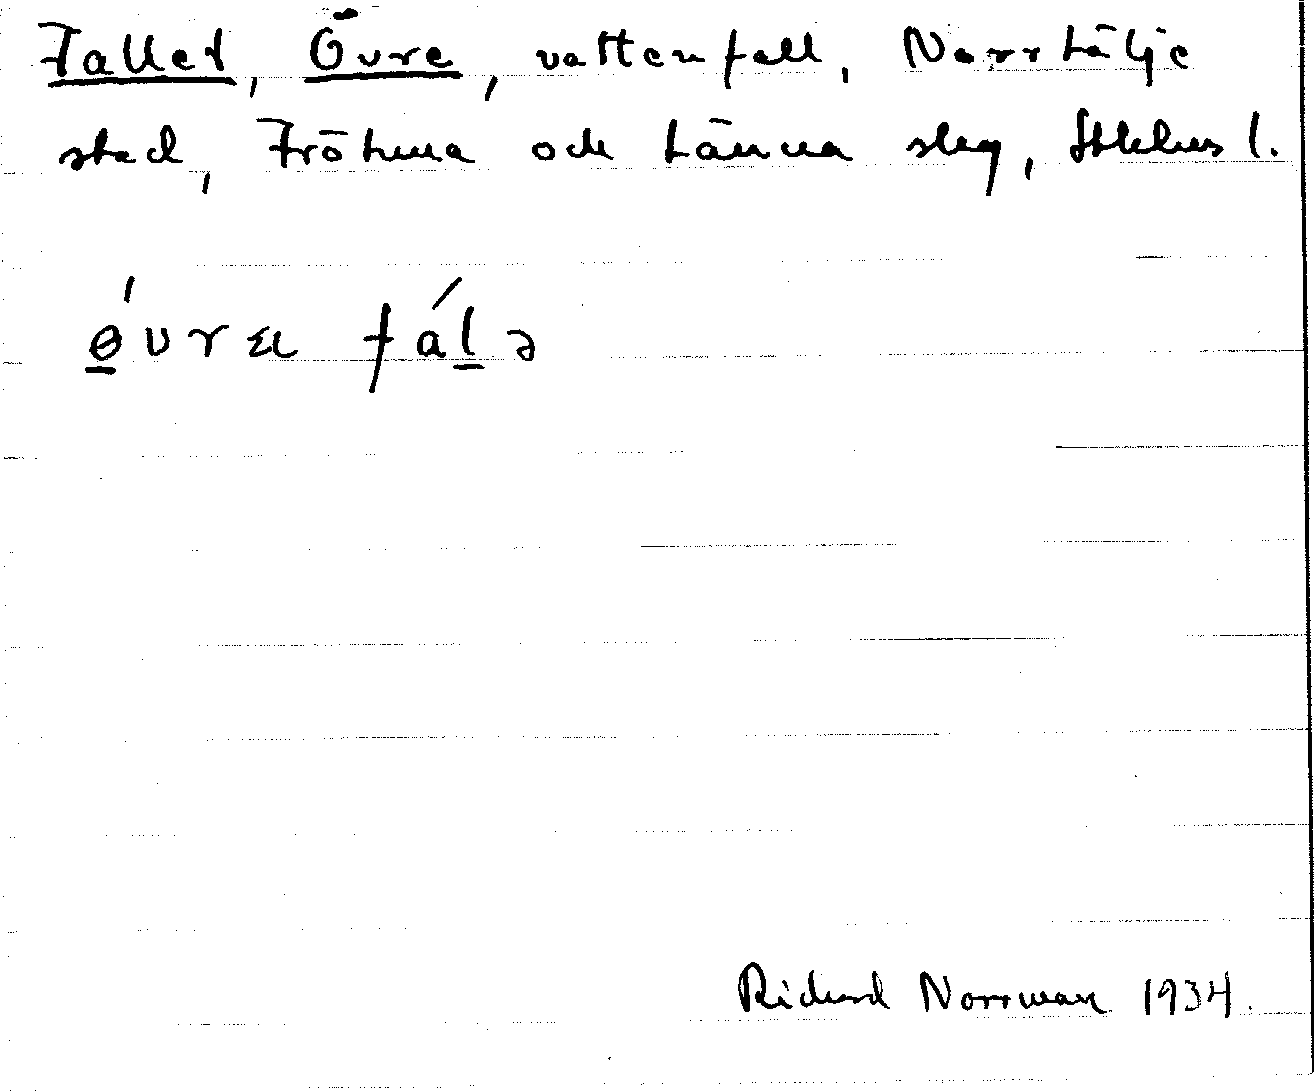 Fallet, Övre, vattenfall, Norrtälje
stad, Frötuna och Länna skg, Sthlms l.
ǿvrɛ fálə
Richard Norrman 1934.